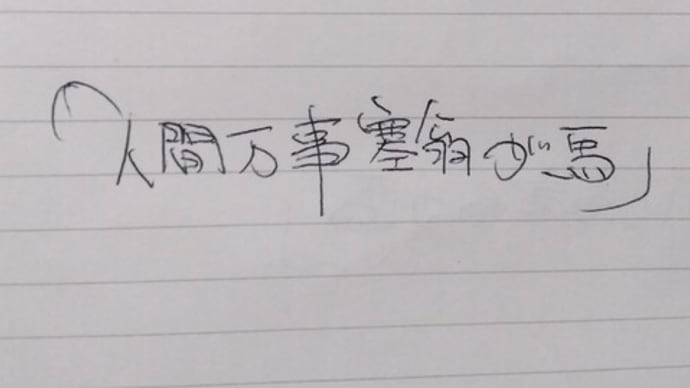 「人間万事塞翁が馬」